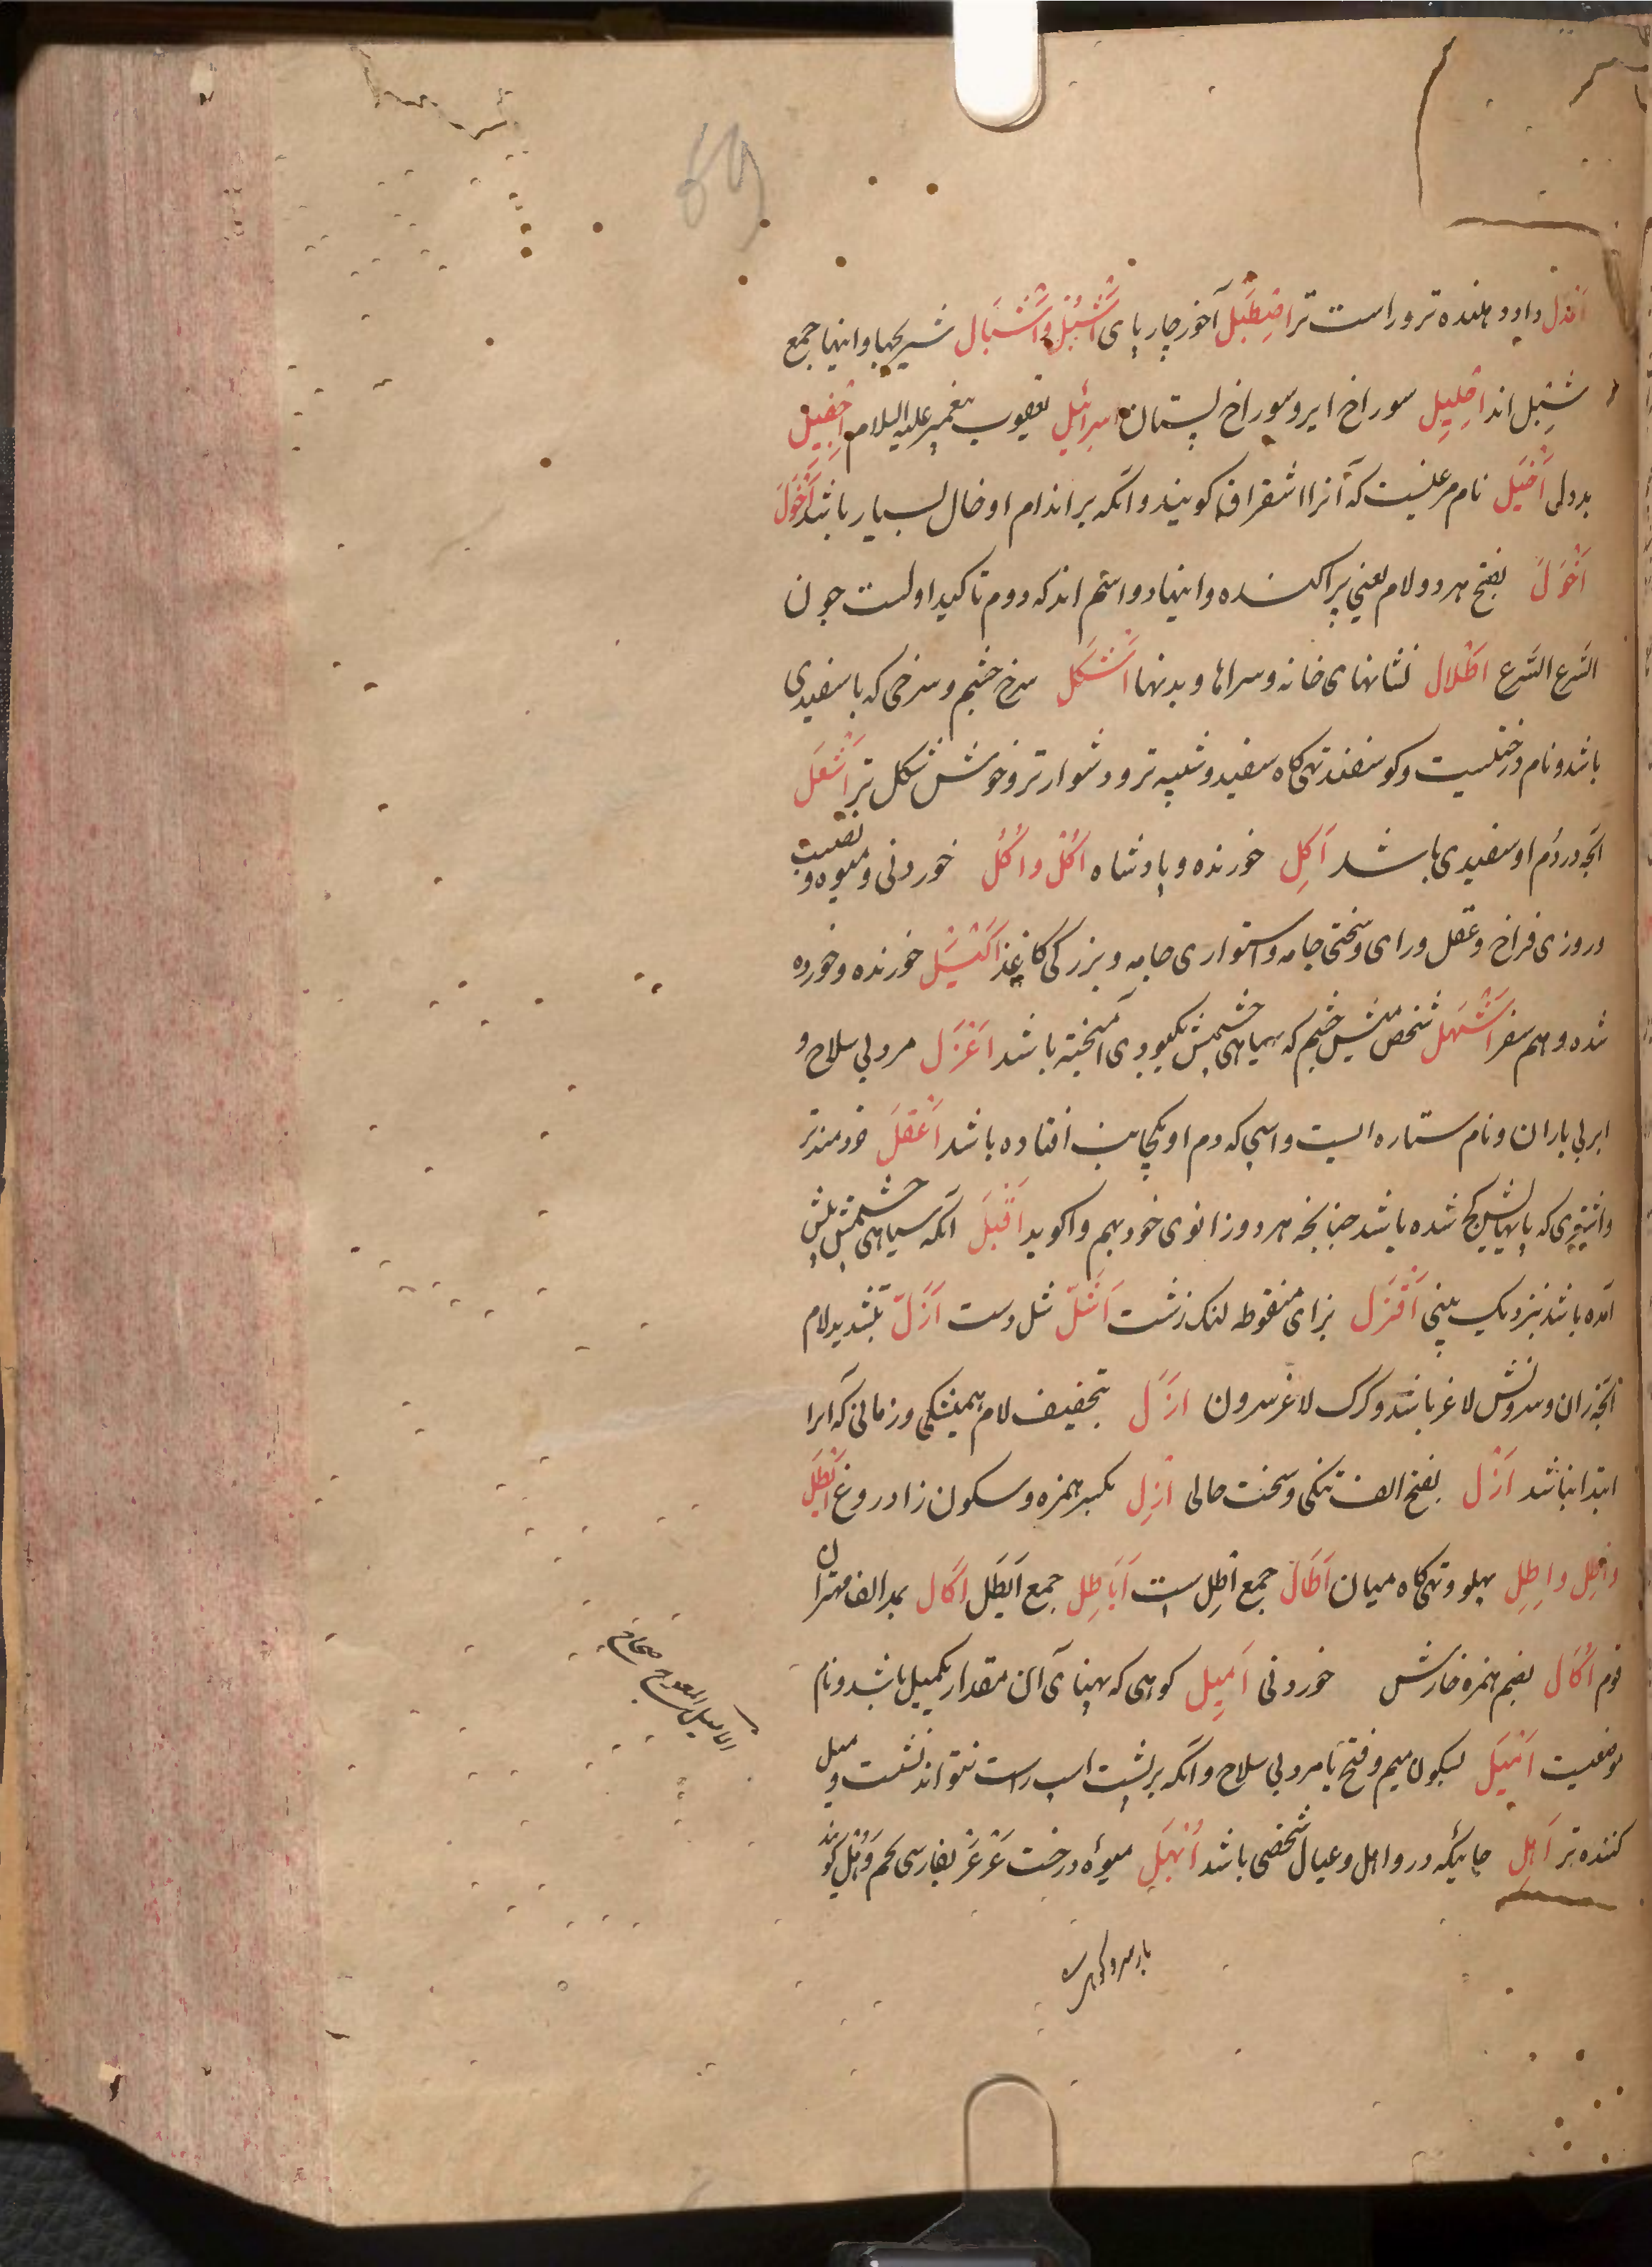 69
اعدل داد دهنده تر و راست تر اصطبل آخور چارپای اشبل و اشبال شیربچها و اینها جمع
شبل اند احلیل سوراخ ایر و سوراخ پستان اسرائیل یعقوب پیغمبر علیه السلام اجفیل
بددلی اخیل نام مرغیست که آنرا اشقراق گویند و آنکه بر اندام او خال بسیار باشد اخول
اخول بفتح هر دو لام یعنی پراکنده و اینها دو اسم اند که دوم تاکید اولست چون
السرع السرع اطلال نشانهای خانه و سراها و بدنها اشکل سرخ چشم و سرخی که با سفیدی
باشد و نام درختیست و گوسفند تهی گاه سفید و شبیه تر و دشوارتر و خوش شکل تر اشعل
آنچه در دم او سفیدی باشد آکل خورنده و پادشاه اکل و اکل خوردنی و میوه و نصیب
و روزی فراخ و عقل و رای و سختی جامه و استواری جامه و بزرگی کاغذ اکیل خورنده و خورده
شده و هم سفر اشهل شخص میش چشم که سیاهی چشمش بکبودی آمیخته باشد اعزل مرد بی سلاح و
ابر بی باران و نام ستاره ایست و اسپی که دم او بیکجانب افتاده باشد اعقل خردمندتر
و اشتری که پایهایش کج شده باشد چنانچه هر دو زانوی خود بهم واکوبد اقبل آنکه سیاهی چشمش پیش
آمده باشد نزدیک بینی اقزل بزای منقوطه لنگ زشت اشل شل دست ازل بتشدید لام
آنچه ران و سرونش لاغر باشد و گرگ لاغر سرون ازل بتخفیف لام همیشگی و زمانی که آنرا
ابتدا نباشد ازل بفتح الف تنگی و سخت حالی ازل بکسر همزه و سکون زا دروغ ایطل
و اطل و اطل پهلو و تهی گاه میان آطال جمع اطل است ایاطل جمع ایطل آکال بمد الف مهتران
قوم اکال بضم همزه خارش خوردنی امیل کوهی که پهنای آن مقدار یکمیل باشد و نام
موضعیست امیل بسکون میم و فتح یا مرد بی سلاح و آنکه بر پشت اسپ راست نتواند نشست و میل
کننده تر اهل جائیکه درو اهل و عیال شخصی باشد ابهل میوهٔ درخت عرعر بفارسی تخم وهل گویند